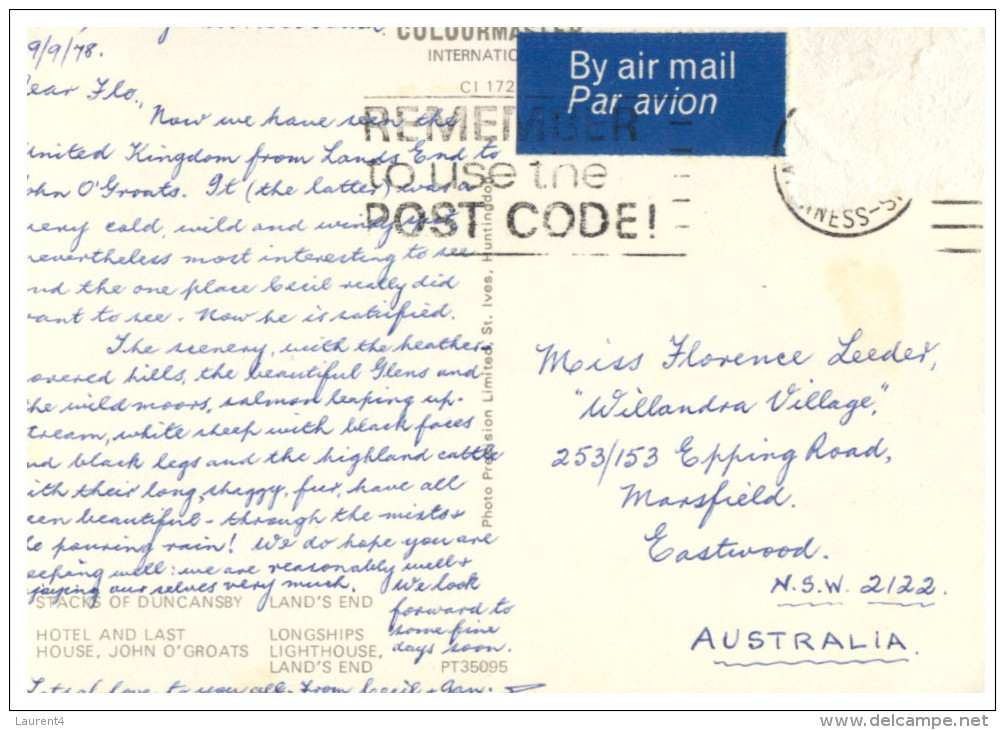 COLOURMASTER
INTERNATIO
9/9/78.
CI 172
By air mail
Par avion
REMEMBER
to use the
POST CODE!
NESS-S
ear Flo.,
Now we have seen the
nited Kingdom from Lands End to
ohn O'Groats. It (the latter) was a
very cold, wild and windy spot
nevertheless most interesting to see
nd the one place Cecil really did
ant to see. Now he is satisfied.
The scenery, with the heather-
overed hills, the beautiful Glens and
he wild moors, salmon leaping up-
tream, white sheep with black faces
nd black legs and the highland cattle
ith their long shaggy, fur, have all
een beautiful - through the mists &
pouring rain! We do hope you are
eeping well: we are reasonably well &
joying our selves very much. We look
forward to
some fine
days soon.
Photo Precision Limited, St. Ives, Huntingdon
STACKS OF DUNCANSBY
LAND'S END
HOTEL AND LAST
HOUSE, JOHN O'GROATS
LONGSHIPS
LIGHTHOUSE,
LAND'S END
PT35095
love to you all. From Cecil &
Miss Florence Leeder,
"Willandra Village,"
253/153 Epping Road,
Marsfield.
Eastwood.
N.S.W. 2122.
AUSTRALIA.
Laurent4
www.delcampe.net